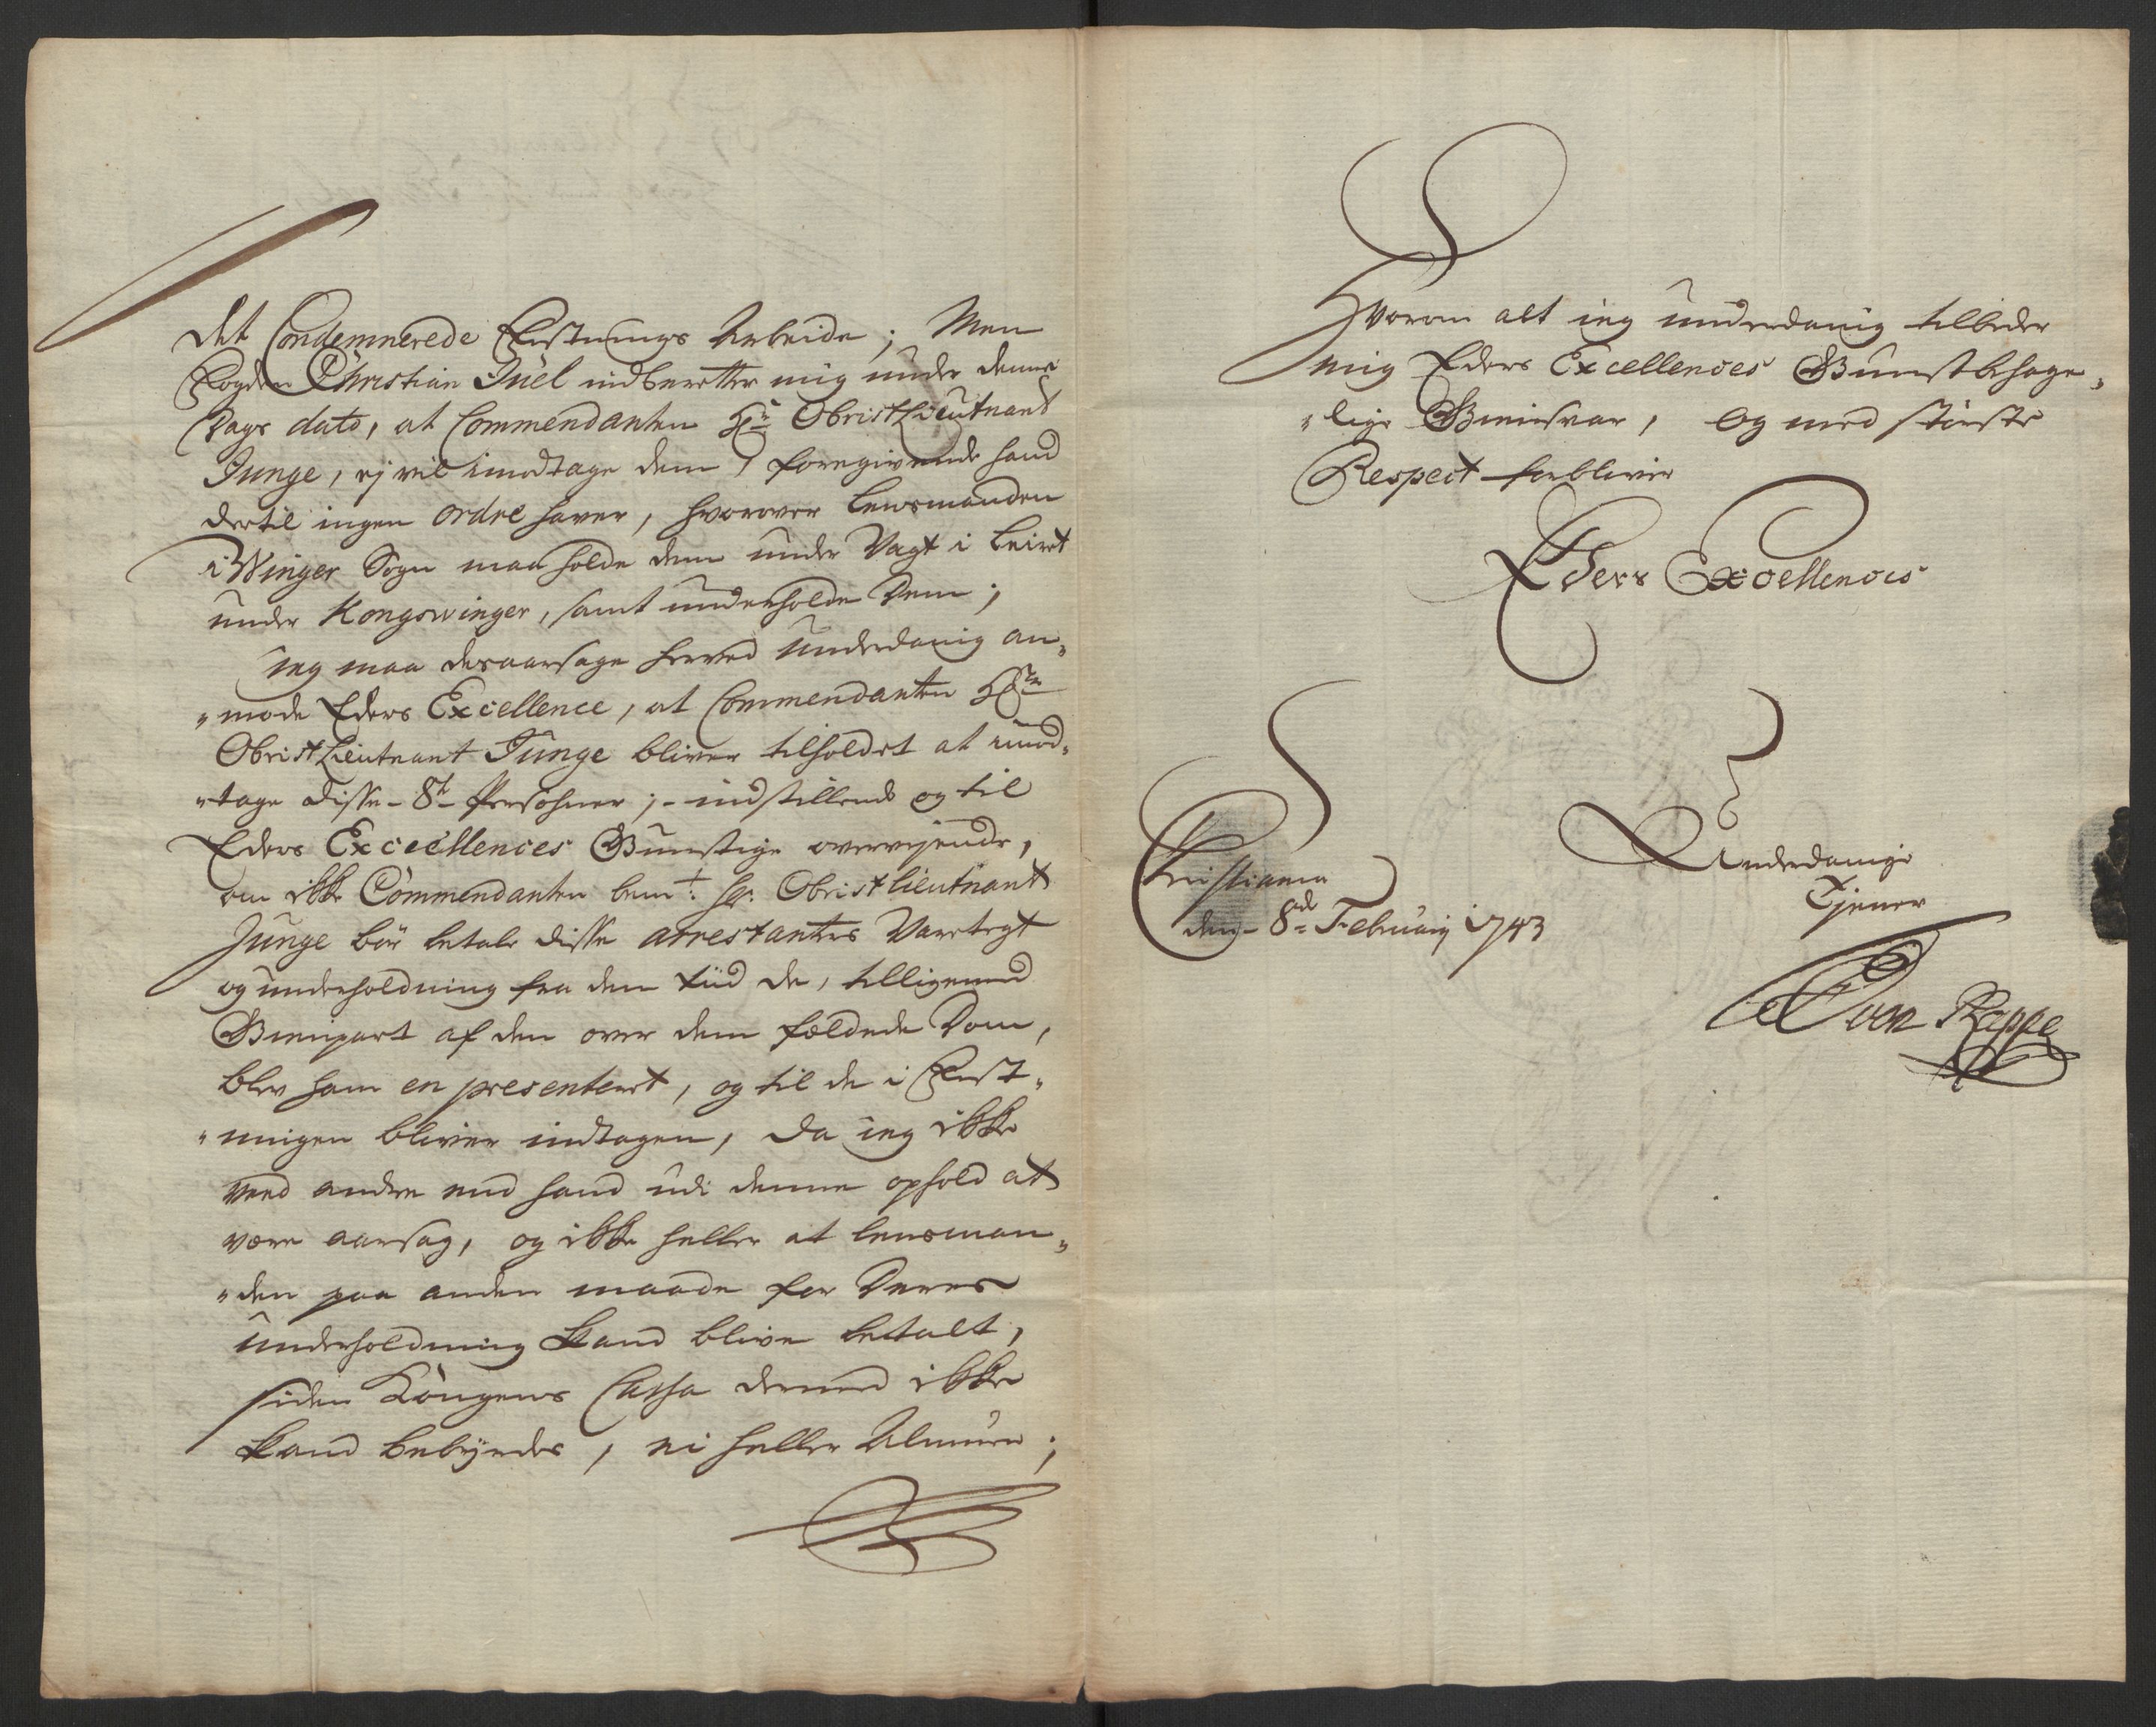 det Condemnerede Festnings Arbeide; Men
Fogden Christian Juel indberetter mig under denne
Dags dato, at Commendanten Hr Obristlieutnant
Junge, ej vil imodtage dem, foregivende hand
dertil ingen ordre haver, hvorover Lensmanden
i Winger Sogn maa holde dem under Vagt i Leiret
under Kongswinger, samt underholde Dem;
Jeg maa desaarsage herved underdanig an„
„mode Eders Excellence, at Commendanten Hr
Obristlieutnant Junge bliver tilholdet at imod„
„tage disse 8te Persohner; indstillende og til
Eders Excellences Gunstige overvejende,
om ikke Commendanten bemt: Hr. Obristlieutnant
Junge bør betale disse arrestantes Varetegt
og underholdning fra den tiid de, tilligemed
Gienpart af den over dem fældede Dom,
blev ham en presenteert, og til de i Fest„
„ningen bliver indtagen, da jeg ikke
veed andre end hand udi denne ophold at
være aarsag, og ikke heller at lensman„
„den paa anden maade for Deres
underholdning kand blive betalt,
siden Kongens Cassa dermed ikke
kand bebyrdes, ei heller Almuen;
Hvorom alt jeg underdanig tilbeder
mig Eders Excellences Gunstbehage„
„lige Giensvar, og med største
Respect forbliver
Eders Excellences
Christiania
den 8de Februarij 1743
Underdanige
Tjener
C von Rappe